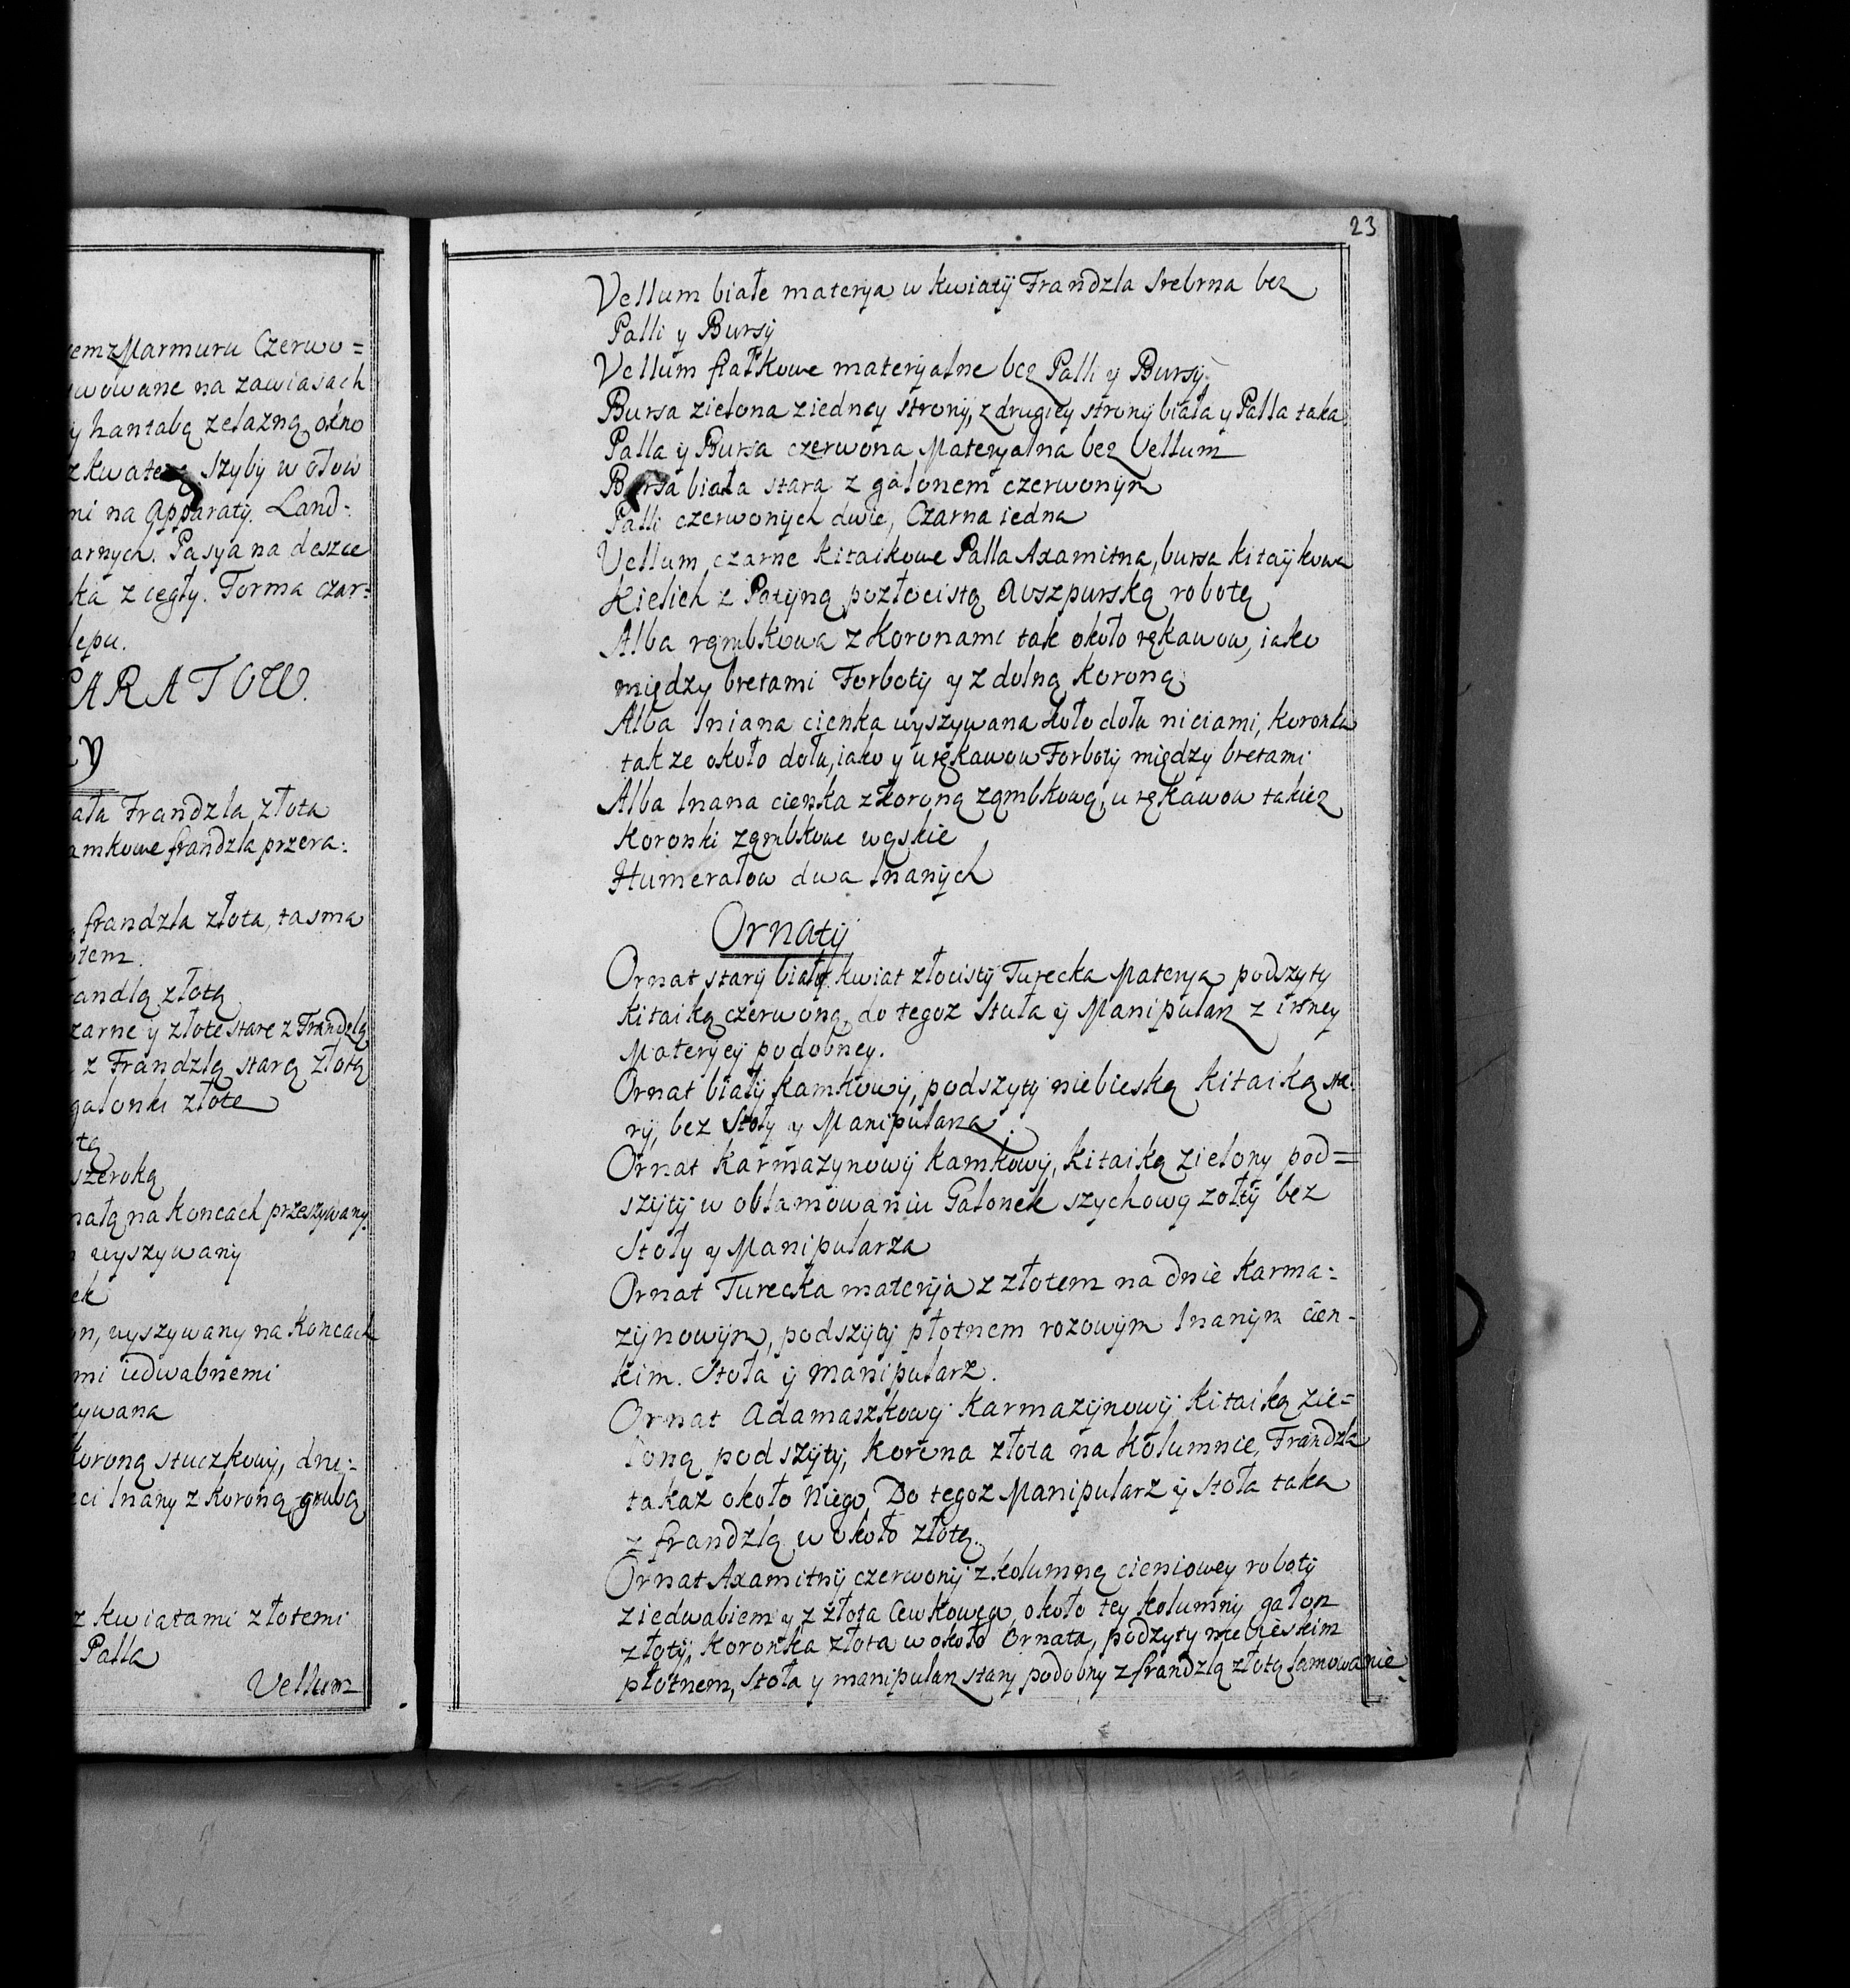 emzMarmuru Czerwo=
wowane na zawiasach
y hantabą zelazną, okno
z kwaterą szyby w ołow
ni na Apparaty. Land-
arnych. Pasya na deszce
ka z cegły. Forma czar=
lepu.
PARATOW.
ała Frandzla złota
amkowe frandzla przera=
frandzla złota, tasma
otem.
andlą złotą
zarne y złote stare z Frandzlą
z Frandzlą starą złotą
galonki złote
tą
szeroką
nałą na koncach przeszywany
wyszywany
ek
n, wyszywany na koncach
mi iedwabnemi
zywana
koroną stuczkowy, dru=
eci lnany z koroną grubą
z kwiatami złotemi
Palla
Vellum
23
Vellum białe materya w kwiaty Frandzla srebrna bez
Palli y Bursy
Vellum fiałkowe materyalne bez Palli y Bursy
Bursa zielona z iedney strony, z drugiey strony biała y Palla taka
Palla y Bursa czerwona Materyalna bez Vellum
Bursa biała stara z galonem czerwonym
Palli czerwonych dwie, Czarna iedna
Vellum czarne kitaikowe Palla Axamitna, bursa kitaykowa
Kielich z Patyną pozłocistą Auszpurską robotą
Alba rąmbkowa z Koronami tak około rękawow, iako
między bretami Forboty y z dolną koroną
Alba lniana cienka wyszywana koło dołu niciami, koronka
takze około dołu, iako y u rękawow Forboty między bretami
Alba lnana cienka z koroną ząmbkową, u rękawow takiez
Koronki ząmbkowe wąskie
Humerałow dwa lnanych
Ornaty
Ornat stary biały kwiat złocisty Turecka Materya podszyty
kitaiką czerwoną, do tegoz Stuła y Manipularz z inney
Materyey podobney.
Ornat biały kamkowy, podszyty niebieską kitaiką sta=
ry, bez Stoły y Manipularza.
Ornat Karmazynowy kamkowy, kitaiką zielony pod=
szyty w oblamowaniu Galonek szychowy zołty bez
Stoły y Manipularza
Ornat Turecka materyja z złotem na dnie karma=
zynowym, podszyty płotnem rozowym lnanym cien-
kim. Stoła y manipularz.
Ornat Adamaszkowy Karmazynowy kitaiką zie=
loną podszyty, korona złota na kolumnie, Frandzla
takaz około niego, Do tegoz Manipularz y Stoła taka
z frandzlą w około złotą.
Ornat Axamitny czerwony z kolumną cieniowey roboty
z iedwabiem y z złota Cewkowego, około tey kolumny galon
złoty, koronka złota w około Ornata, podzyty niebieskim
płotnem, Stoła y manipularz stary podobny z frandzlą złotą lamowanie